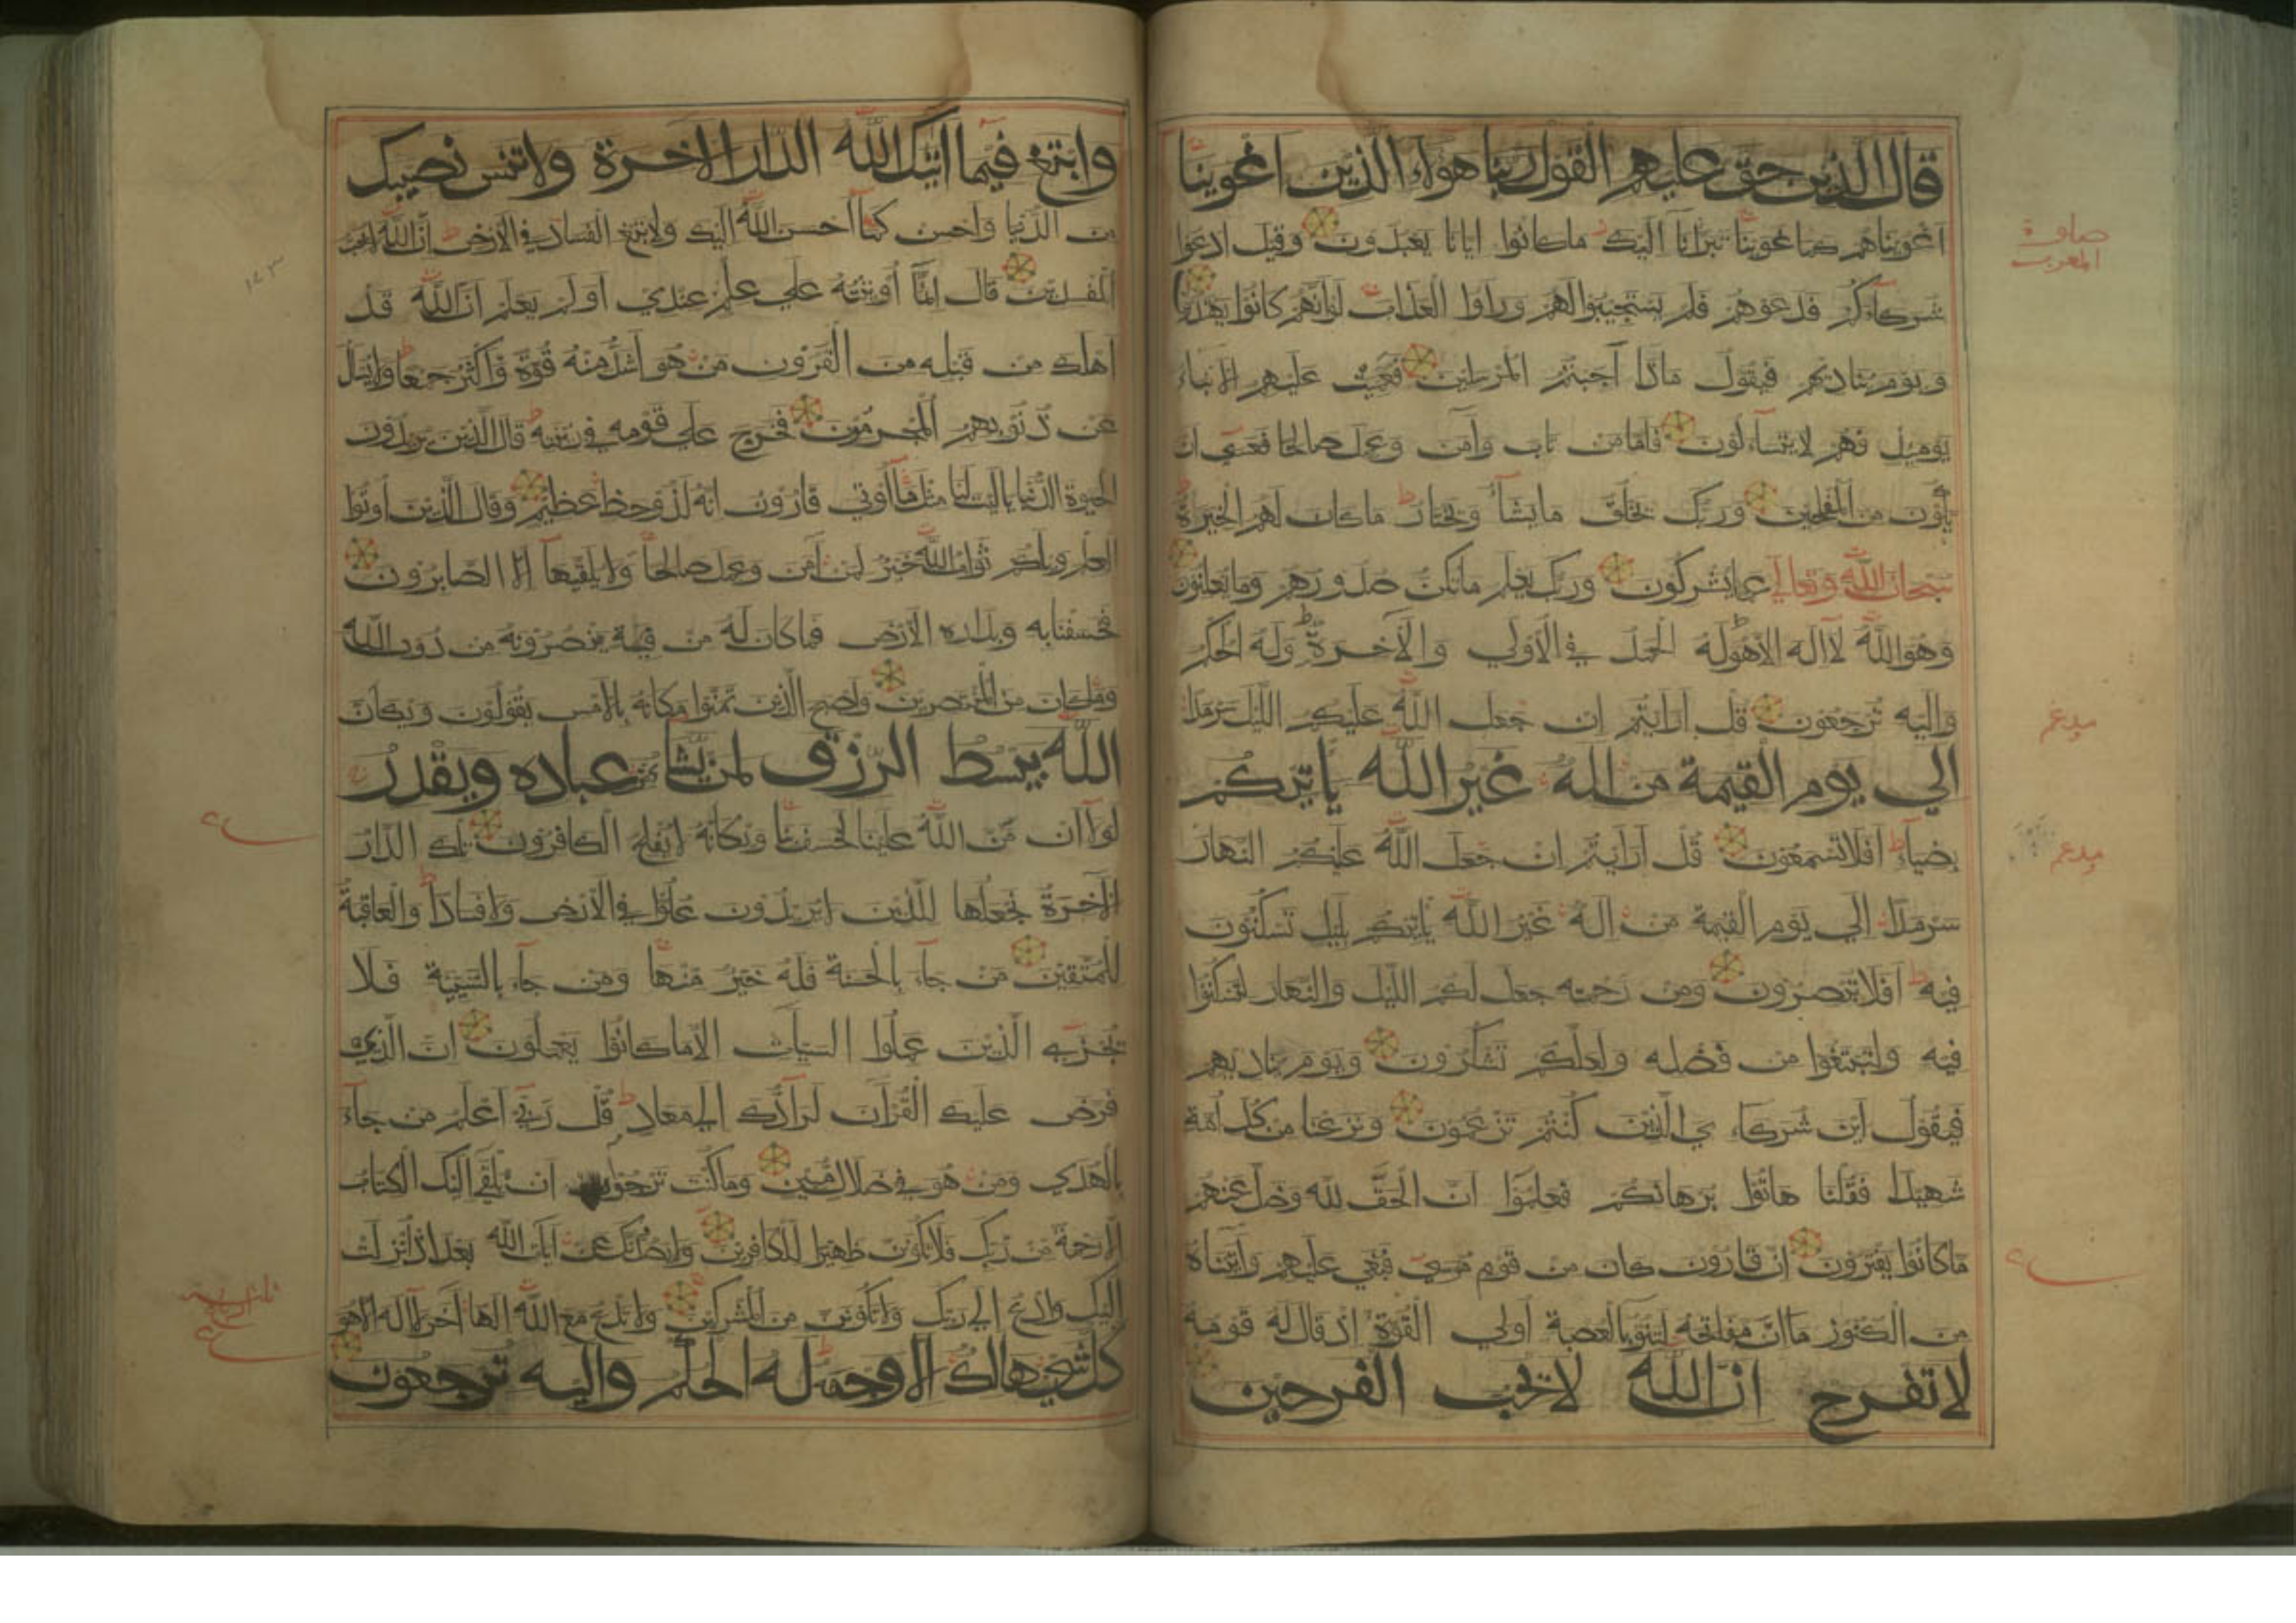 قال الذين حق عليهم القول ربنا هؤلاء الذين اغوينا
اغويناهم كما غوينا تبرانا اليك ماكانوا ايانا يعبدون وقيل ادعوا
شركاءكم فدعوهم فلم يستجيبوا لهم وراوا العذاب لوانهم كانوا يهتدون
ويوم يناديهم فيقول ماذا اجبتم المرسلين فعميت عليهم الانباء
يومئذ فهم لا يتساءلون فاما من تاب وآمن وعمل صالحا فعسى ان
يكون من المفلحين وربك يخلق مايشآء ويختار ماكان لهم الخيرة
سبحان الله وتعالى عما يشركون وربك يعلم ماتكن صدورهم ومايعلنون
وهو الله لااله الاهو له الحمد في الاولي والآخرة وله الحكم
واليه ترجعون قل ارايتم ان جعل الله عليكم الليل سرمدا
الي يوم القيمة من اله غير الله ياتيكم
بضياء افلاتسمعون قل ارايتم ان جعل الله عليكم النهار
سرمدا الي يوم القيمة من اله غير الله ياتيكم بليل تسكنون
فيه افلاتبصرون ومن رحمته جعل لكم الليل والنهار لتسكنوا
فيه ولتبتغوا من فضله ولعلكم تشكرون ويوم يناديهم
فيقول اين شركاءي الذين كنتم تزعمون ونزعنا من كل امة
شهيدا فقلنا هاتوا برهانكم فعلموا ان الحق لله وضل عنهم
ماكانوا يفترون ان قارون كان من قوم موسى فبغي عليهم وآتيناه
من الكنوز ماان مفاتحه لتنوء بالعصبة اولي القوة اذ قال له قومه
لاتفرح ان الله لايحب الفرحين
مدغم
مدغم
وابتغ فيما اتيك الله الدار الاخرة ولاتنس نصيبك
من الدنيا واحسن كما احسن الله اليك ولاتبغ الفساد في الارض ان الله لايحب
المفسدين قال انما اوتيته علي علم عندي اولم يعلم ان الله قد
اهلك من قبله من القرون من هو اشد منه قوة واكثر جمعا ولايسأل
عن ذنوبهم المجرمون فخرج علي قومه في زينته قال الذين يريدون
الحيوة الدنيا ياليت لنا مثل مااوتي قارون انه لذوحظ عظيم وقال الذين اوتوا
العلم ويلكم ثواب الله خير لمن آمن وعمل صالحا ولايلقيها الا الصابرون
فخسفنا به وبداره الارض فماكان له من فئة ينصرونه من دون الله
وماكان من المنتصرين واصبح الذين تمنوا مكانه بالامس يقولون ويكان
الله يبسط الرزق لمن يشا من عباده ويقدر
لولا ان من الله علينا لخسف بنا ويكانه لايفلح الكافرون تلك الدار
الآخرة نجعلها للذين لايريدون علوا في الارض ولافسادا والعاقبة
للمتقين من جآء بالحسنة فله خير منها ومن جآء بالسيئة فلا
يجزي الذين عملوا السيات الا ماكانوا يعملون ان الذي
فرض عليك القرآن لرادك الي معاد قل ربي اعلم من جآء
بالهدي ومن هو في ضلال مبين وماكنت ترجوا ان يلقى اليك الكتاب
الارحمة من ربك فلاتكونن ظهيرا للكافرين ولايصدنك عن آيات الله بعد اذ انزلت
اليك وادع الي ربك ولاتكونن من المشركين ولاتدع مع الله الها آخر لااله الاهو
كل شيء هالك الاوجهه له الحكم واليه ترجعون